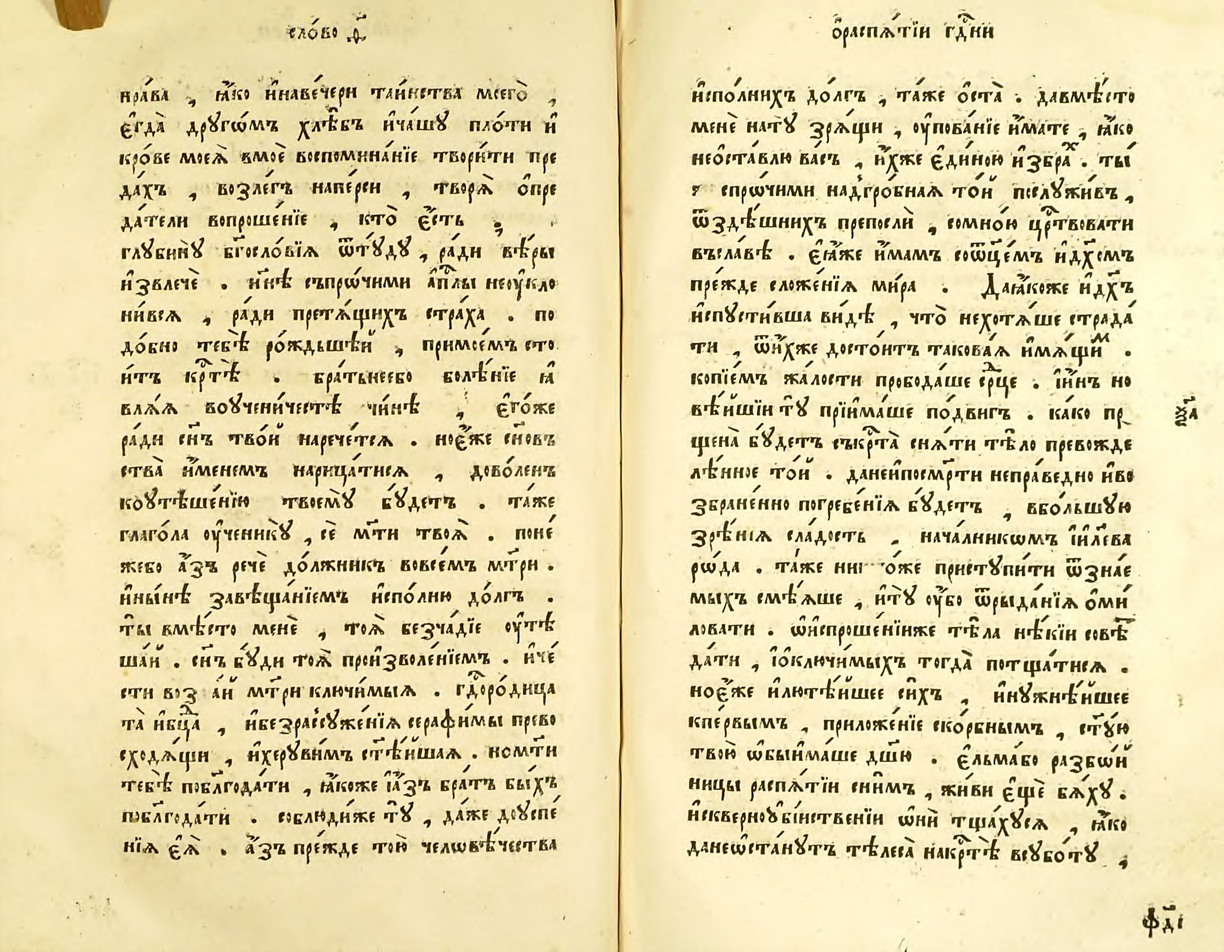 сло́во д҃
нра́ва , ꙗ҆́ко и҆навече́ри таи́нства моего̀ ,
є҆гда̀ дрꙋгѡ́мъ хлѣ́бъ и҆ча́шꙋ пло́ти и҆
кро́ве моеѧ̀ вмоѐ воспомина́нїе твори́ти пре
да́хъ , возле́гъ напе́рси , творѧ̀ ѻ҆пре
да́тели вопроше́нїе , кто̀ є҆́сть ;
глꙋбинꙋ̀ бг҃осло́вїѧ ѿтꙋ́дꙋ , ра́ди вѣ́ры
и҆звлечѐ . и҆нн҃ѣ съпро́чими а҆пⷭ҇лы неоу҆кло
ни́всѧ , ра́ди претѧ́щихъ стра́ха . по
до́бно тебѣ̀ ро́ждьшей , примое́мъ сто
и́тъ крⷭ҇тѣ̀ . братьнеебо боле́нїе ꙗ҆
влѧ́ѧ воꙋ҆чени́честѣ чи́нѣ , є҆го́же
ра́ди сн҃ъ тво́й нарече́тсѧ . ное҆́же сн҃овъ
ства и҆́менемъ нарица́тисѧ , дово́ленъ
коу҆тѣше́нїю твоемꙋ̀ бꙋ́детъ . та́же
глаго́ла оу҆ченикꙋ̀ , сѐ мт҃и твоѧ̀ . поне́
жебо а҆́зъ речѐ до́лжникъ вовсе́мъ мт҃ри .
и҆ны́нѣ завѣща́нїемъ и҆спо́лню до́лгъ .
ты̀ вмѣ́сто менѐ , тоѧ̀ безча́дїе оу҆тѣ
ша́й . сн҃ъ бꙋ́ди тоѧ̀ произволе́нїемъ . и҆че́
сти воз ай мт҃ри ключи́мыѧ . гдⷭ҇оро́дица
та̀ и҆бц҃а , и҆безразсꙋже́нїѧ серафи́мы прево
сходѧ́щи , и҆херꙋви́мъ ст҃ѣ́йшаѧ . номт҃и
тебѣ̀ побл҃года́ти , ꙗ҆́коже і҆а҆́зъ бра́тъ бы́хъ
побл҃года́ти . соблюди́же тꙋ̀ , да́же доꙋ҆спе́
нїѧ є҆ѧ̀ . а҆́зъ пре́жде тою̀ человѣ́чества
ѻ҆распѧ́тїи гдⷭ҇ни
и҆спо́лнихъ до́лгъ , та́же ѻ҆ста̀ . давмѣ́сто
менѐ натꙋ̀ зрѧ́щи , оу҆пова́нїе и҆́мате , ꙗ҆́ко
неѻ҆ста́влю ва́съ , и҆́хже є҆ди́ною и҆збра́хъ . ты́
спро́чими надгро́бнаѧ то́й послꙋжи́въ ,
ѿздѣ́шнихъ препослѝ , сомно́ю црⷭ҇твовати
въсла́вѣ . є҆ѧ́же и҆́мамъ соѿц҃е́мъ и҆дх҃омъ
пре́жде сложе́нїѧ ми́ра . Даꙗ҆́коже и҆дх҃ъ
и҆спꙋсти́вша ви́дѣ , что̀ нехотѧ́ше страда́
ти , ѿни́хже досто́итъ такова́ѧ и҆мꙋщи́мъ .
копїе́мъ жа́лости пробода́ше срⷣце . і҆и́нъ но
вѣ́йшїи тꙋ̀ прїима́ше по́двигъ . ка́ко пр
щена̀ бꙋ́детъ съкрⷭ҇та̀ снѧ́ти тѣ́ло превожде
лѣ́нное то́й . данеи҆посмр҃ти непра́ведно и҆во
збране́нно погребе́нїѧ бꙋ́детъ , вбо́льшꙋю
зрѣ́нїѧ сла́дость . нача́лникѡмъ і҆и҃лева
ро́да . та́же ни оже пристꙋпи́ти ѿзнае́
мыхъ смѣ́ѧше , и҆тꙋ̀ оу҆́бо ѿрыда́нїѧ ѻ҆ми́
ловати . ѡ҆и҆спроше́нїиже тѣ́ла нѣ́кїи совѣ́
дати , і҆ѻ҆ключи́мыхъ тогда̀ потща́тисѧ .
ное҆́же и҆лютѣ́йшее си́хъ , и҆нꙋжнѣ́йшее
кпе́рвымъ , приложе́нїе ско́рбнымъ , ст҃ꙋ́ю
твою̀ ѡ҆быи́маше дш҃ю . є҆льма́бо разбо́й
ницы распѧ́тїи сни́мъ , жи́ви є҆щѐ бѧ́хꙋ .
и҆скверноꙋ҆бі́йственїи ѻ҆нѝ тща́хꙋсѧ , ꙗ҆́ко
данеѡ҆ста́нꙋтъ тѣлеса̀ накрⷭ҇тѣ̀ всꙋбо́тꙋ ,